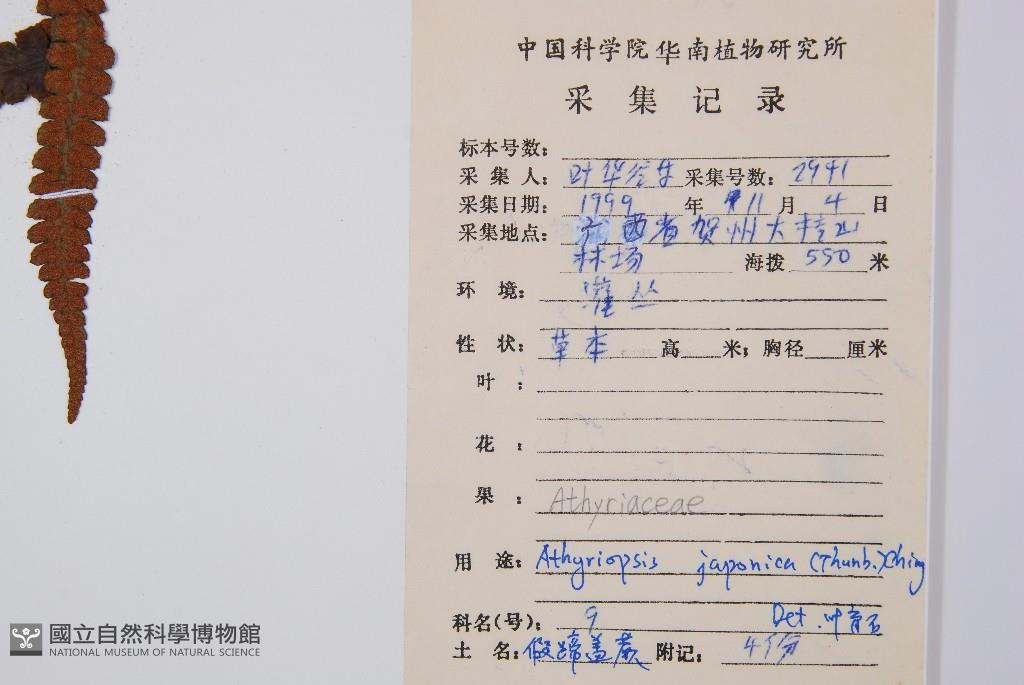 中国科学院华南植物研究所
采集记录
标本号数:
采集人: 叶华 采集号数: 2941
采集日期: 1999 年 11 月 4 日
采集地点: 西省贺州大桂山
林场 海拨 550 米
环境: 灌丛
性状: 草本 高 米; 胸径 厘米
叶:
花:
果: Athyriaceae
用途: Athyriopsis japonica (Thunb.) Ching
科名(号): 9 Det. 叶育石
土名: 假蹄盖蕨 附记: 4份
國立自然科學博物館
NATIONAL MUSEUM OF NATURAL SCIENCE